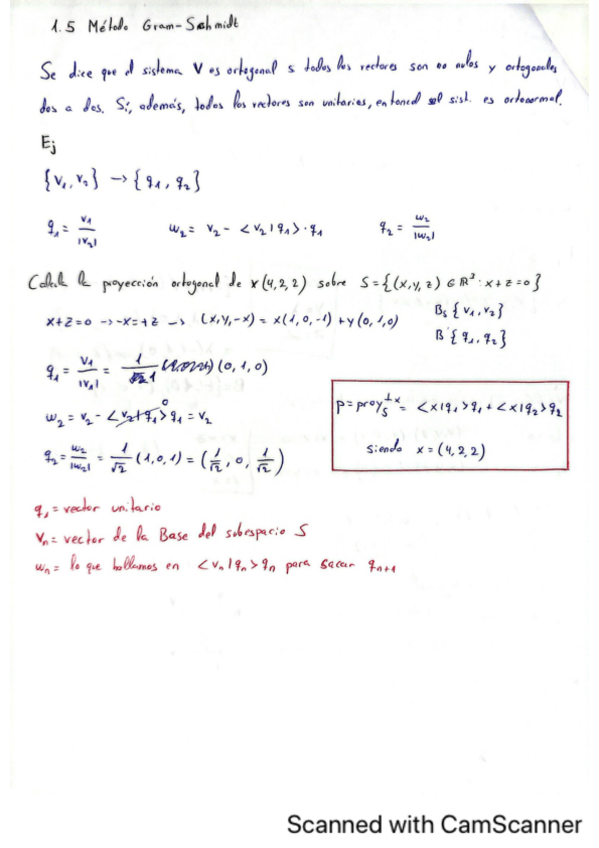 1.5 Método Gram-Schmidt
Se dice que el sistema V es ortogonal s todos los vectores son no nulos y ortogonales
dos a dos. Si, además, todos los vectores son unitarios, entonces el sist. es ortonormal.
Ej
{v₁, v₂} → {q₁, q₂}
q₁ = v₁/|v₁|   w₂ = v₂ - <v₂|q₁>·q₁   q₂ = w₂/|w₂|
Calcula la proyección ortogonal de x(4,2,2) sobre S={(x,y,z) ∈ ℝ³: x+z=0}
x+z=0 → -x=+z → (x,y,-x) = x(1,0,-1) + y(0,1,0)   Bₛ{v₁,v₂}
B'{q₁,q₂}
q₁ = v₁/|v₁| = 1/1 (0,1,0)
w₂ = v₂ - <v₂|q₁>q₁ = v₂
0
q₂ = w₂/|w₂| = 1/√2 (1,0,1) = (1/√2, 0, 1/√2)
p = proy⊥ₛ x = <x|q₁>q₁ + <x|q₂>q₂
siendo x = (4,2,2)
q₁ = vector unitario
vₙ = vector de la Base del subespacio S
wₙ = lo que hallamos en <vₙ|qₙ>qₙ para sacar qₙ₊₁
Scanned with CamScanner